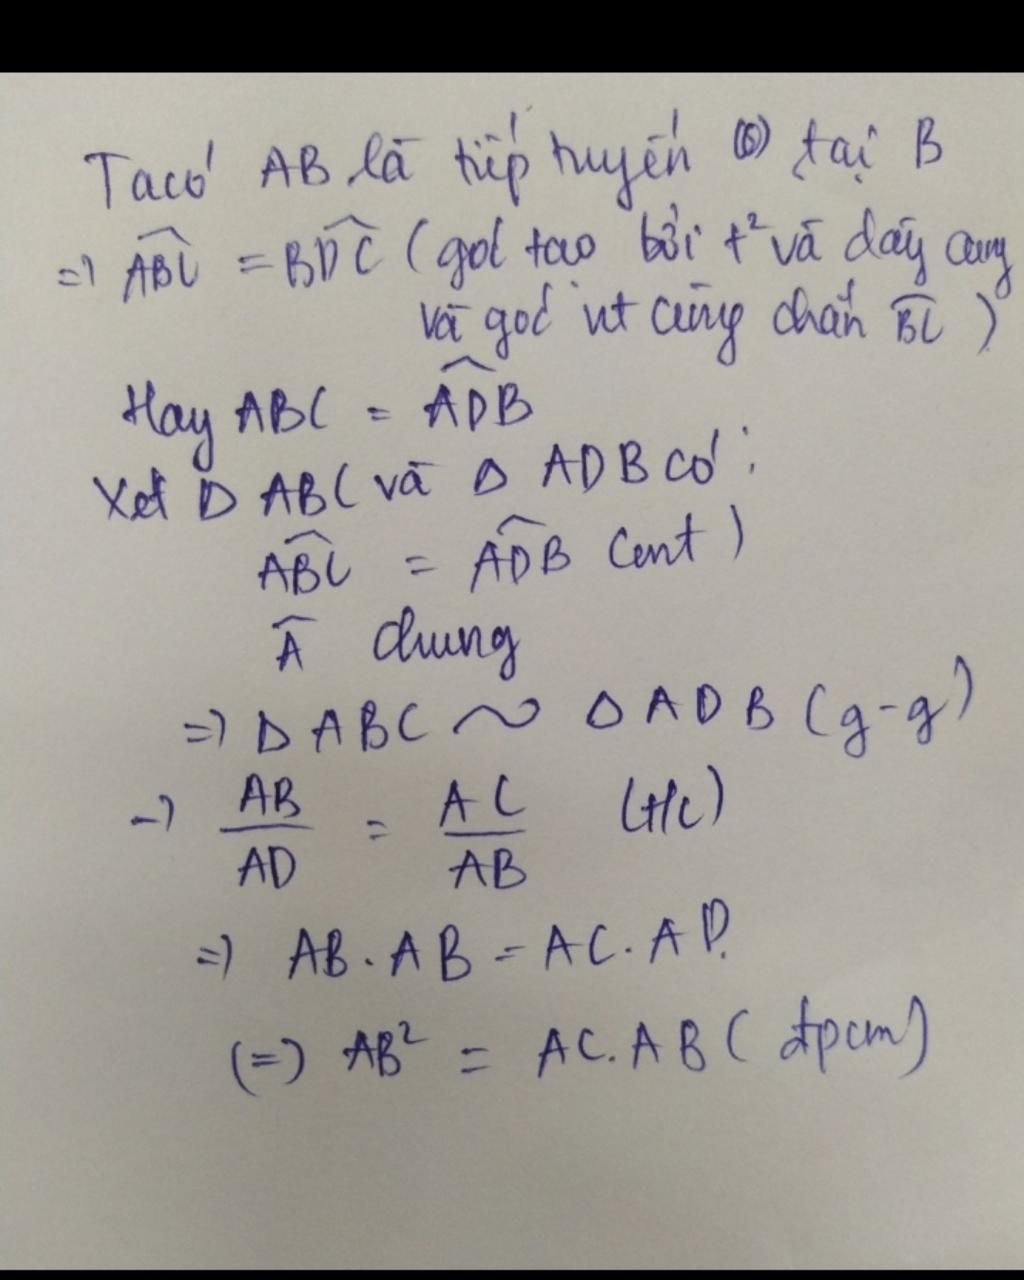 Ta có AB là tiếp tuyến (O) tại B
=> ABC = BDC (góc tạo bởi t² và dây cung
và góc nt cùng chắn BC)
Hay ABC = ADB
Xét Δ ABC và Δ ADB có:
ABC = ADB (cmt)
A chung
=> Δ ABC ~ Δ ADB (g-g)
-> AB/AD = AC/AB (t/c)
=> AB . AB = AC . AD.
(=) AB² = AC. AB (đpcm)